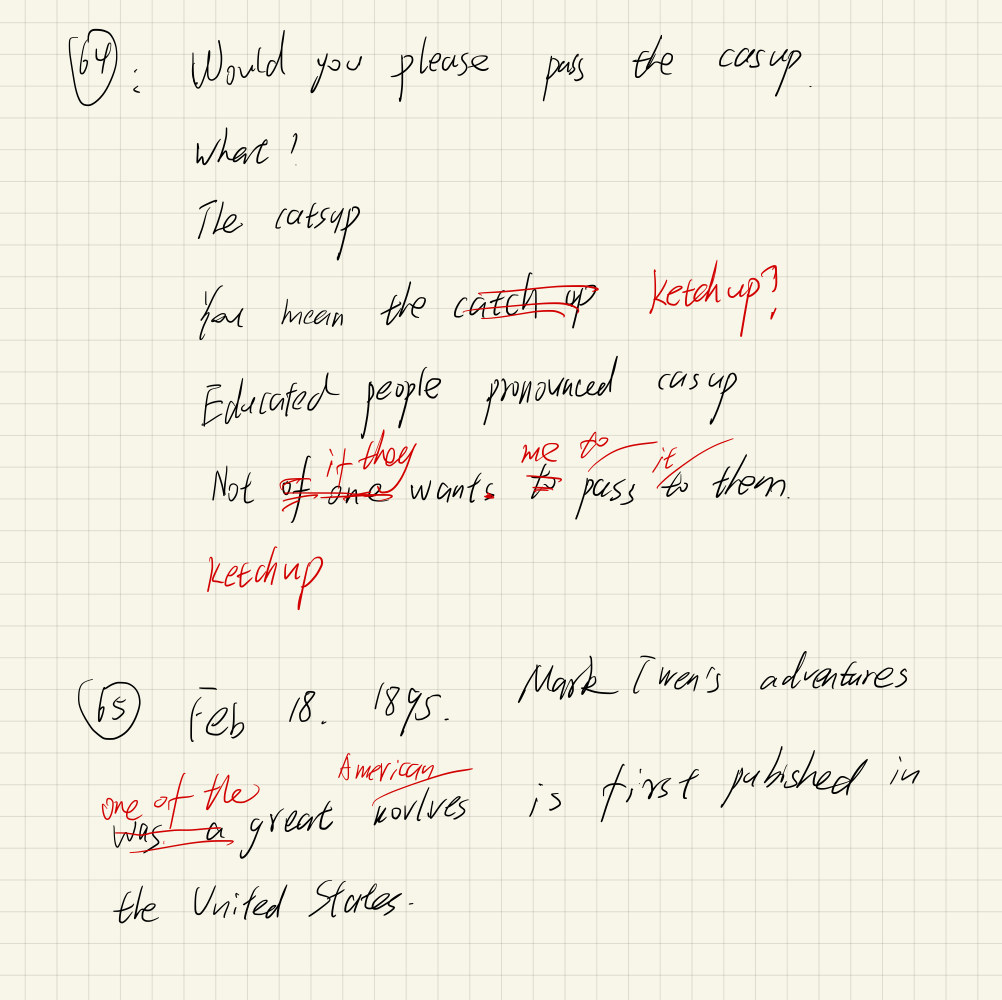 64: Would you please pass the casup.
What?
The catsup
You mean the catch up Ketchup?
Educated people pronounced casup
if they me to it
Not of one wants to pass to them.
Ketchup
65 Feb 18. 1895. Mark Twen's adventures
one of the American
was a great novlves is first pubished in
the United States.